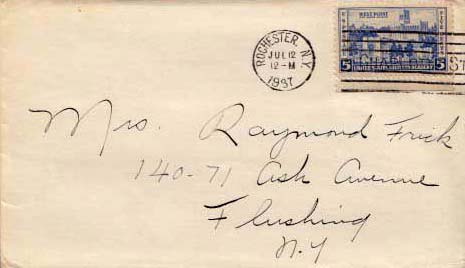 ROCHESTER, N.Y.
JUL 12
12-M
1937
WEST POINT
5 5
UNITED STATES MILITARY ACADEMY
Mrs. Raymond Frick
140-71 Ash Avenue
Flushing
N.Y